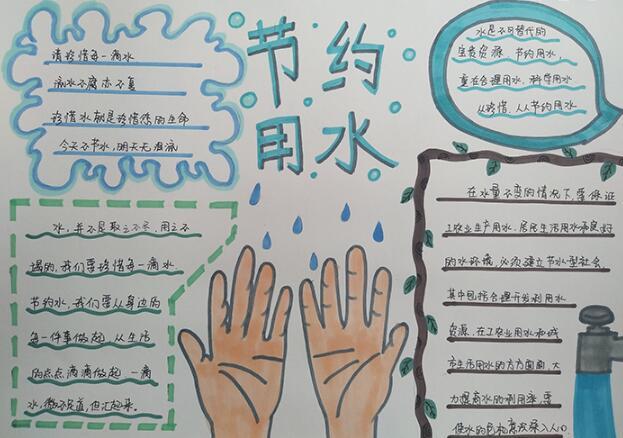 节约
用水
请珍惜每一滴水
滴水不腐亦不息
珍惜水就是珍惜您的生命
今天不节水，明天无泪流
水是不可替代的
宝贵资源，节约用水，
重在合理用水，科学用水
从珍惜，人人节约用水
水，并不是取之不尽，用之不
竭的，我们要珍惜每一滴水
节约水，我们要从身边的
每一件事做起，从生活
的点点滴滴做起，一滴
水，微不足道，但汇起来。
在水量不变的情况下，要保证
工农业生产用水、居民生活用水和良好
的水环境，必须建立节水型社会
其中包括合理开发利用水
资源，在工农业用水和城
市生活用水的方方面面，大
力提高水的利用率，要
使水的危机意识深入人心